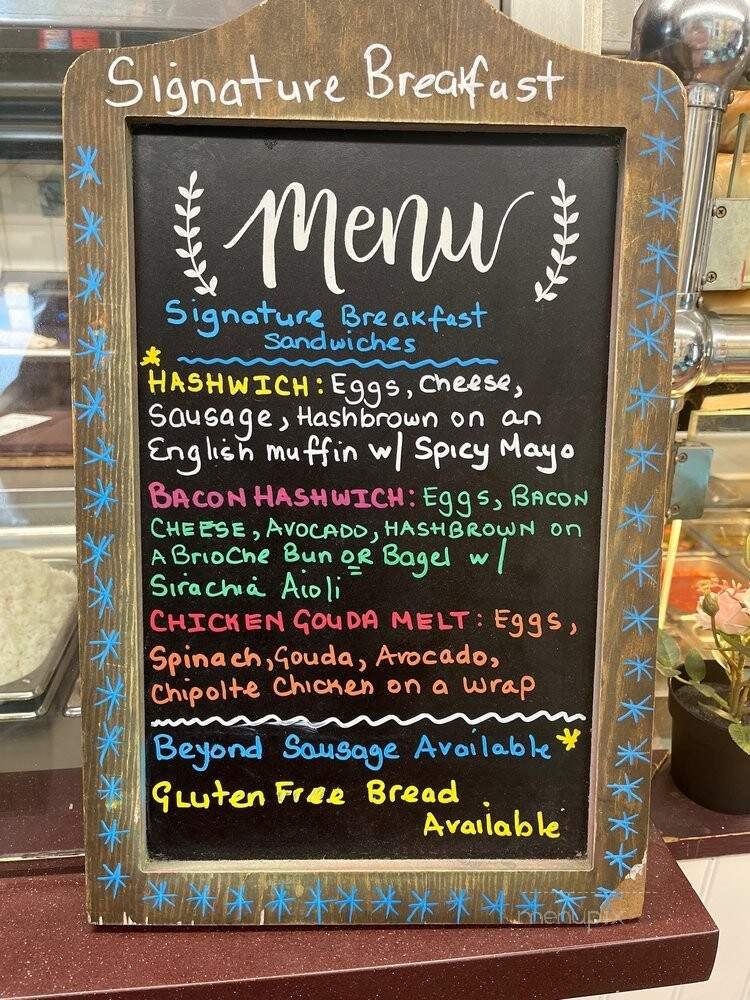 Signature Breakfast
Menu
Signature Breakfast
Sandwiches
* HASHWICH: Eggs, Cheese,
Sausage, Hashbrown on an
English muffin w/ Spicy Mayo
BACON HASHWICH: Eggs, BACON
CHEESE, AVOCADO, HASHBROWN on
A BrioChe Bun OR Bagel w/
Sirachia Aioli
CHICKEN GOUDA MELT: Eggs,
Spinach, Gouda, Avocado,
Chipolte Chicken on a wrap
Beyond Sausage Available *
Gluten Free Bread
Available
menupix